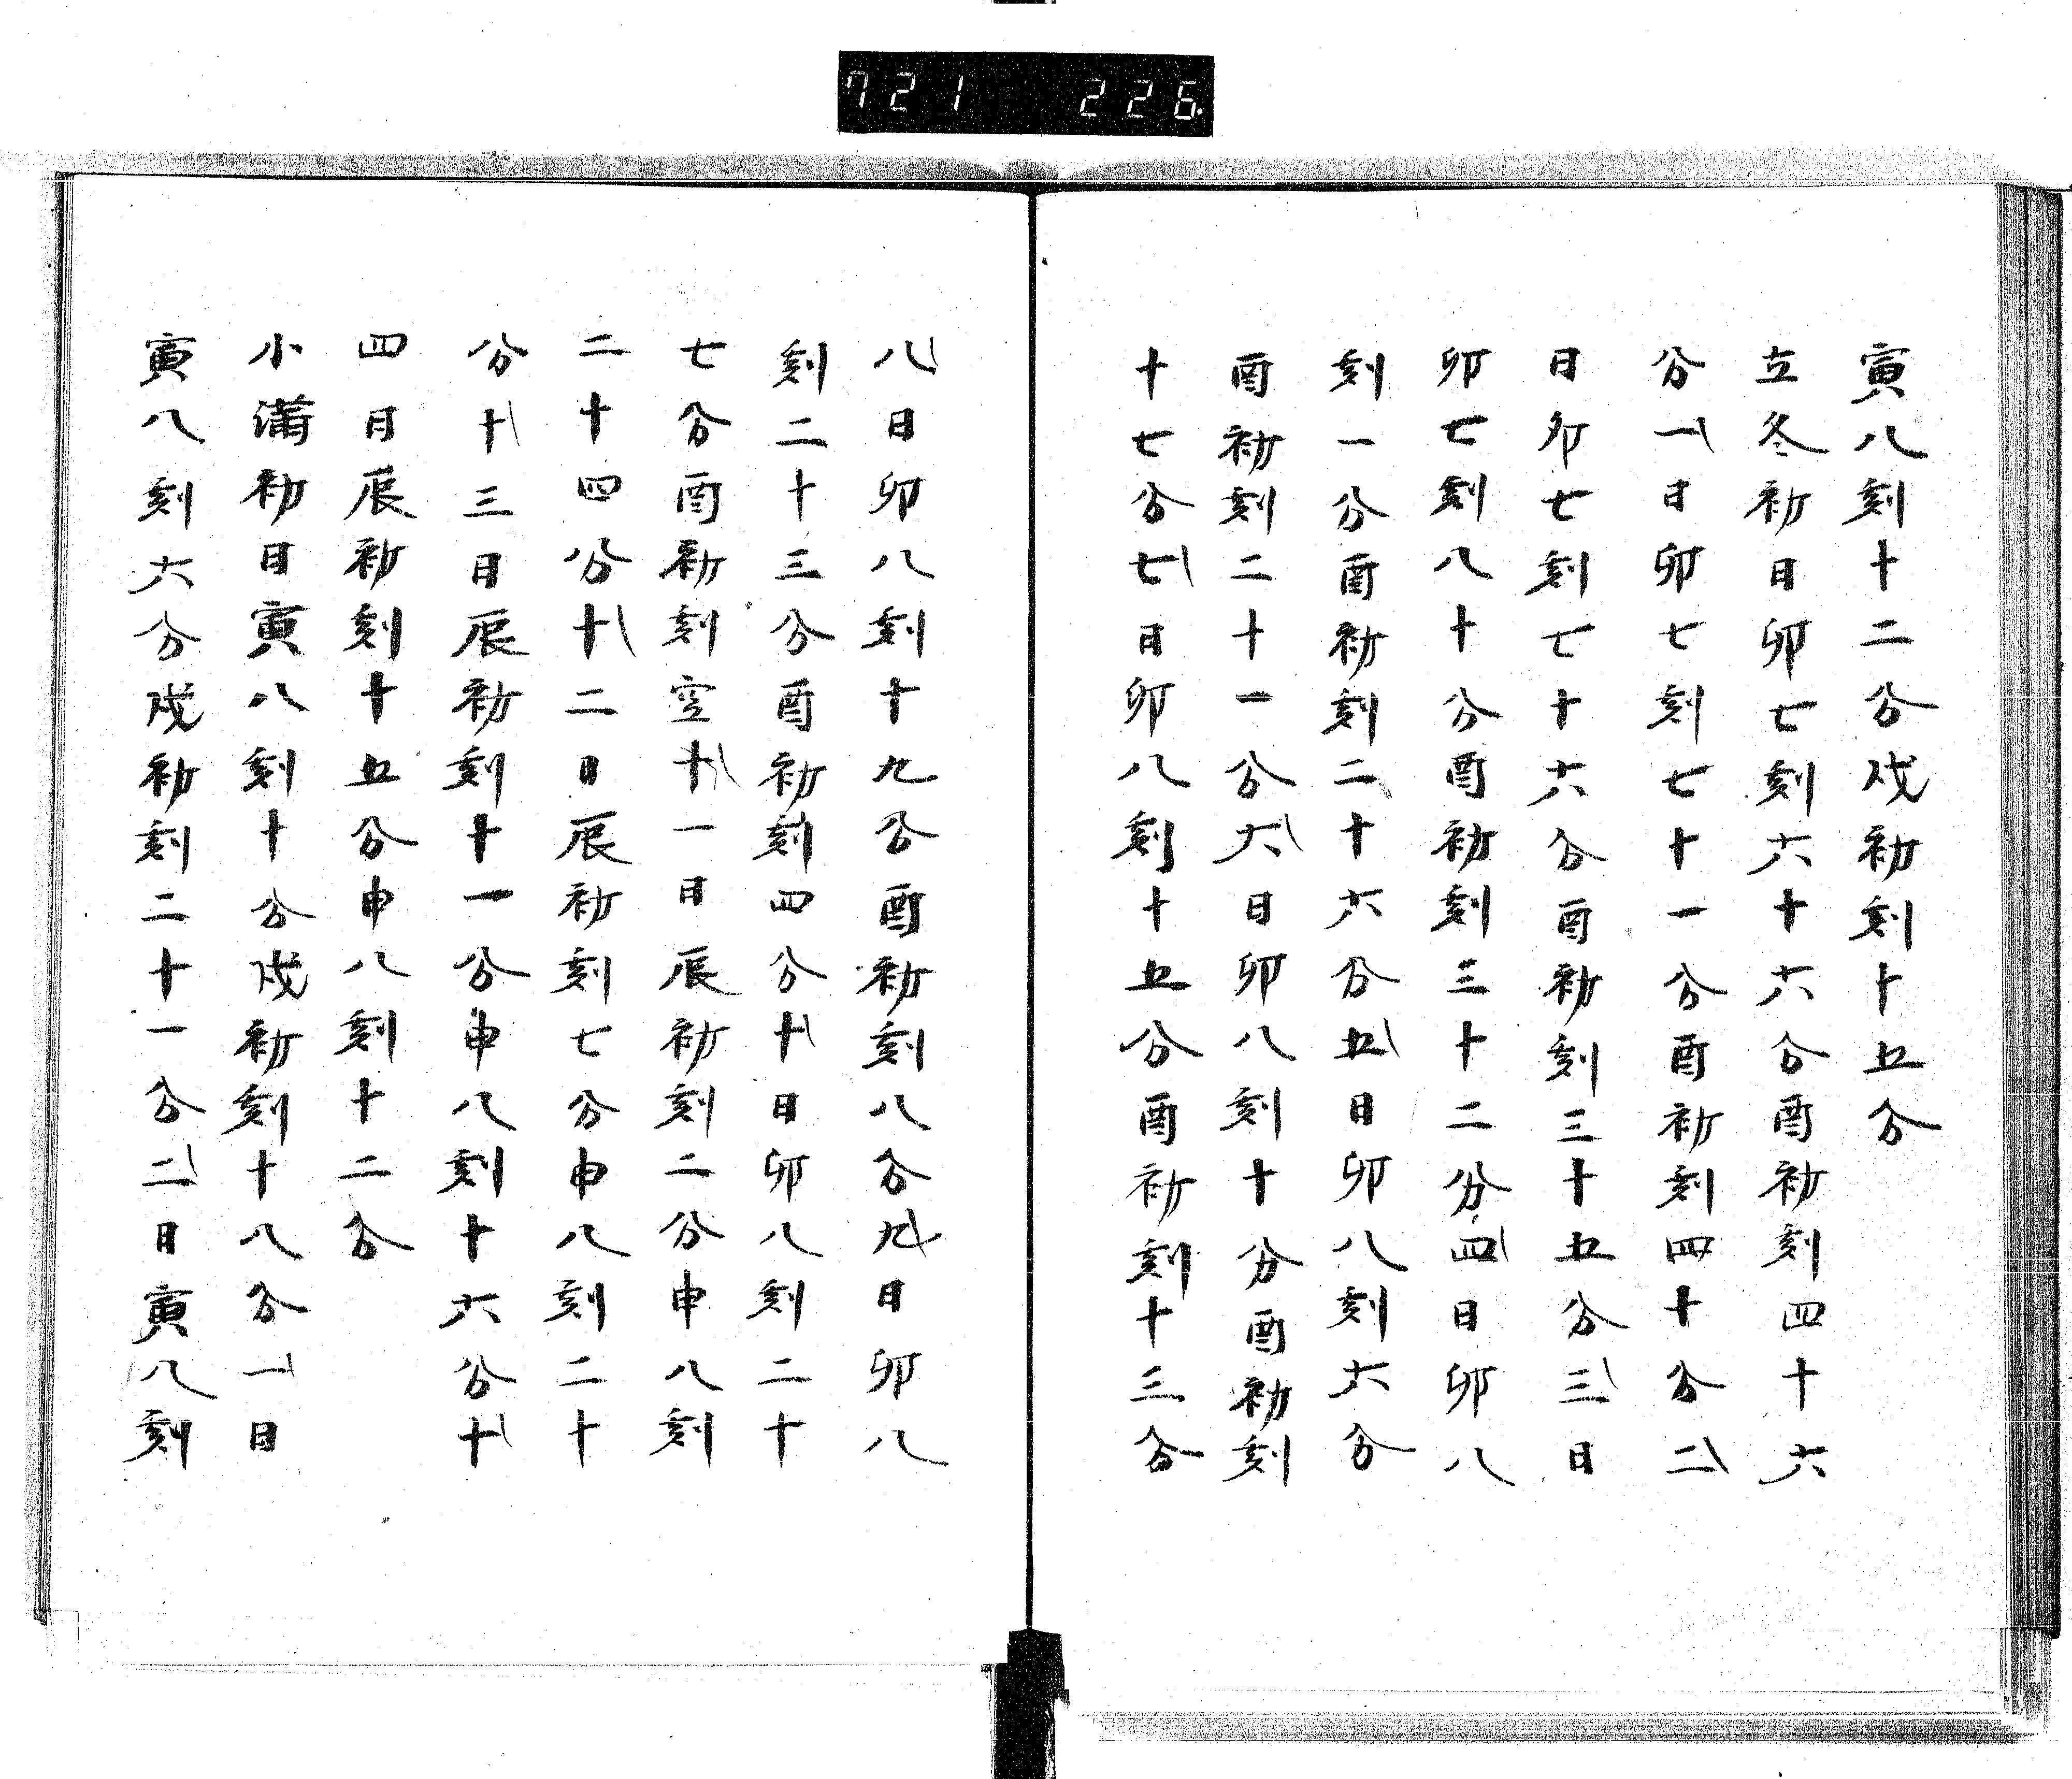 721 226
寅八刻十二分戌初刻十五分
立冬初日卯七刻六十六分酉初刻四十六
分一日卯七刻七十一分酉初刻四十分二
日卯七刻七十六分酉初刻三十五分三日
卯七刻八十分酉初刻三十二分四日卯八
刻一分酉初刻二十六分五日卯八刻六分
酉初刻二十一分六日卯八刻十分酉初刻
十七分七日卯八刻十五分酉初刻十三分
八日卯八刻十九分酉初刻八分九日卯八
刻二十三分酉初刻四分十日卯八刻二十
七分酉初刻空十一日辰初刻二分申八刻
二十四分十二日辰初刻七分申八刻二十
分十三日辰初刻十一分申八刻十六分十
四日辰初刻十五分申八刻十二分
小満初日寅八刻十分戌初刻十八分一日
寅八刻六分戌初刻二十一分二日寅八刻